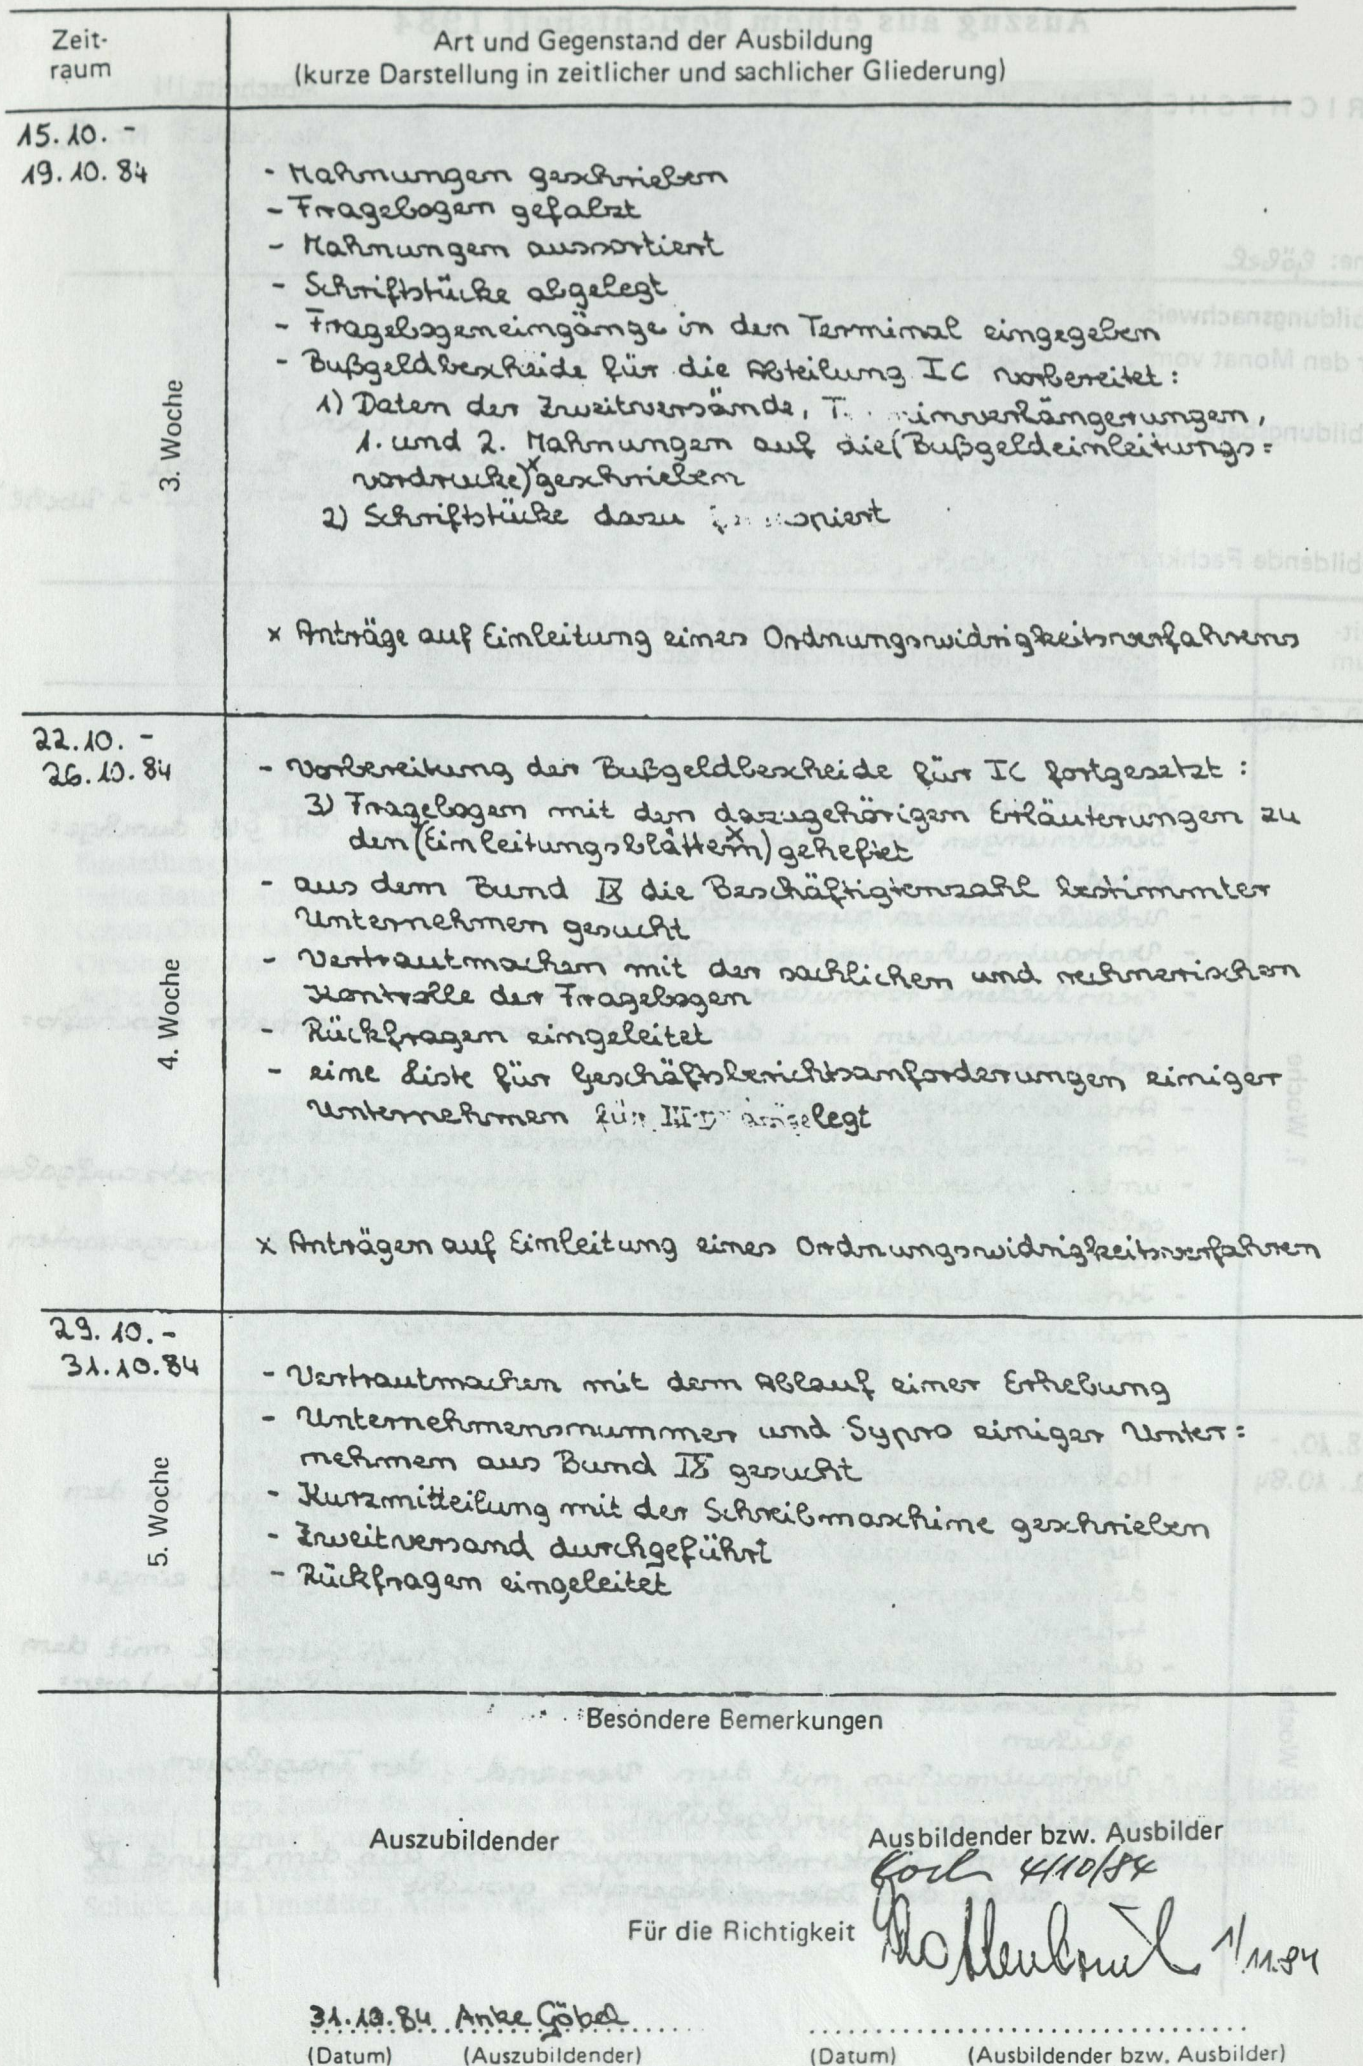 Zeit-
raum
Art und Gegenstand der Ausbildung
(kurze Darstellung in zeitlicher und sachlicher Gliederung)
15.10. -
19.10.84
3. Woche
- Mahnungen geschrieben
- Fragebogen gefalzt
- Mahnungen aussortiert
- Schriftstücke abgelegt
- Fragebogeneingänge in den Terminal eingegeben
- Bußgeldbescheide für die Abteilung IC vorbereitet:
1) Daten der Zweitversände, T inverlängerungen,
1. und 2. Mahnungen auf die (Bußgeldeinleitungs=
vordrucke)x geschrieben
2) Schriftstücke dazu opiert
x Anträge auf Einleitung eines Ordnungswidrigkeitsverfahrens
22.10. -
26.10.84
4. Woche
- Vorbereitung der Bußgeldbescheide für IC fortgesetzt:
3) Fragebogen mit den dazugehörigen Erläuterungen zu
den (Einleitungsblättern)x geheftet
- aus dem Bund IX die Beschäftigtenzahl bestimmter
Unternehmen gesucht
- Vertrautmachen mit der sachlichen und rechnerischen
Kontrolle der Fragebogen
- Rückfragen eingeleitet
- eine Liste für Geschäftsberichtsanforderungen einiger
Unternehmen für III D angelegt
x Anträgen auf Einleitung eines Ordnungswidrigkeitsverfahren
29.10.-
31.10.84
5. Woche
- Vertrautmachen mit dem Ablauf einer Erhebung
- Unternehmensnummer und Sypro einiger Unter=
nehmen aus Bund IX gesucht
- Kurzmitteilung mit der Schreibmaschine geschrieben
- Zweitversand durchgeführt
- Rückfragen eingeleitet
Besondere Bemerkungen
Auszubildender
Ausbildender bzw. Ausbilder
4/10/84
Für die Richtigkeit
1/11.84
31.10.84 Anke Göbel
(Datum) (Auszubildender)
(Datum) (Ausbildender bzw. Ausbilder)